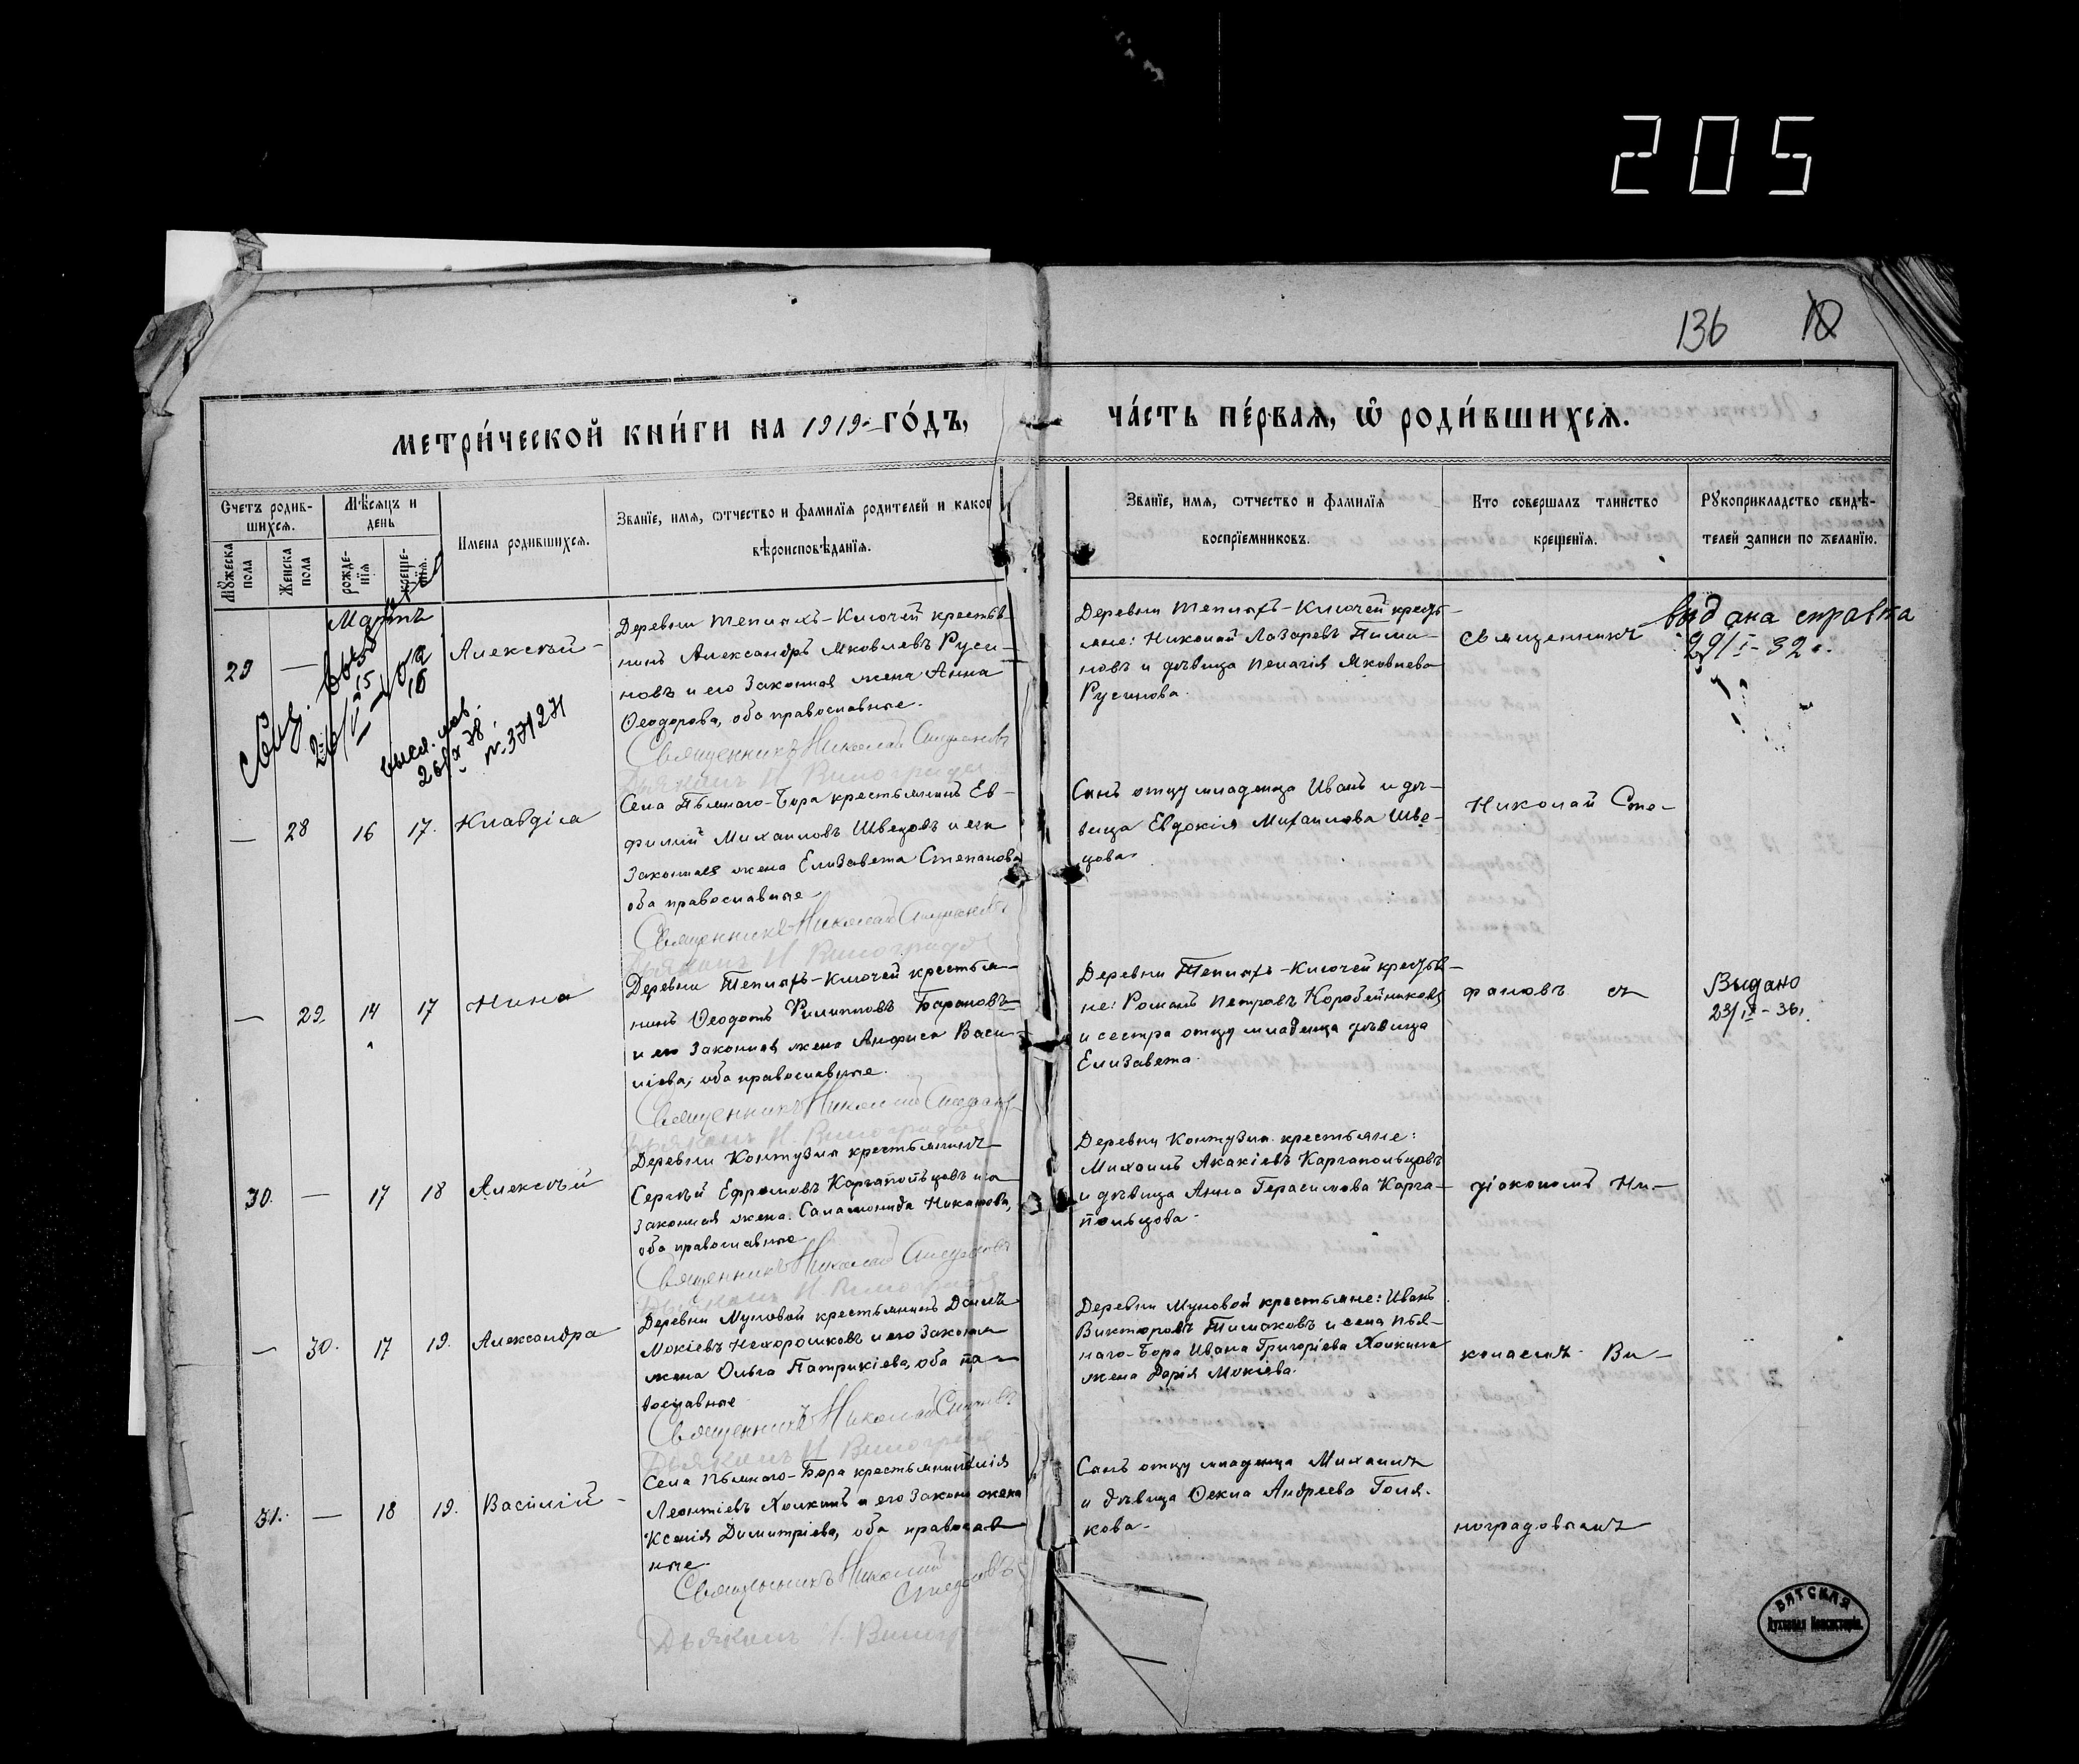 205
136
метри́ческой кни́ги на 1919 го́дъ,
ча́сть пе́рвая, ѡ҆ роди́вшихся.
Счетъ родив-
шихся.
Мѣсяцъ и
день
Имена родившихся.
Званїе, имя, ѿтчество и фамилїя родителей и каков
вѣроисповѣданїя.
Мꙋжеска
пола
Женска
пола
рожде-
нїя
креще-
нїя.
Званїе, имя, ѿтчество и фамилїя
воспрїемниковъ.
Кто совершалъ таинство
крещенїя.
Рꙋкоприкладство свидѣ-
телей записи по желанїю.
Мартъ
29
—
15
16
Алексѣй
Деревни Теплыхъ-Ключей крестья-
нинъ Александръ Яковлевъ Руси-
новъ и его законная жена Анна
Ѳеодорова, оба православные.
Священникъ Николай Стефановъ
Дьяконъ Н. Виноградов
Деревни Теплыхъ-Ключей кресть-
яне: Николай Лазаревъ Пили-
новъ и дѣвица Пелагія Яковлева
Русинова.
Священникъ
выдана справка
29/I-32 г.
№ 371271
—
28
16
17.
Клавдіа
Села Пьянаго-Бора крестьянинъ Ев-
фимій Михаиловъ Швецовъ и его
законная жена Елизавета Степанова
оба православные
Священникъ Николай Стефановъ
Дьяконъ Н. Виноградов
Сынъ отцу младенца Иванъ и дѣ-
вица Евдокія Михаилова Шве-
цова
Николай Сте-
—
29.
14
17
Нина
Деревни Теплыхъ-Ключей крестья-
нинъ Ѳеодотъ Филипповъ Барановъ
и его законная жена Анфиса Васи-
ліева, оба православные.
Священникъ Николай Стефановъ
Дьяконъ Н. Виноградов
Деревни Теплыхъ-Ключей крестья-
не: Романъ Петровъ Коробейниковъ
и сестра отцу младенца дѣвица
Елизавета.
фановъ съ
Выдано
30.
—
17
18
Алексѣй
Деревни Контузла крестьянинъ
Сергѣй Ефремовъ Каргапольцовъ и
законная жена Саламонида Никанова,
оба православные
Священникъ Николай Стефановъ
Дьяконъ Н. Виноградов
Деревни Контузла крестьяне:
Михаилъ Акакіевъ Каргапольцовъ
и дѣвица Анна Герасимова Карга-
польцова.
діакономъ Ни-
—
30.
17
19.
Александра
Деревни Муновой крестьянинъ Даніилъ
Мокіевъ Нехорошковъ и его законная
жена Ольга Патрикіева, оба пра-
вославные
Священникъ Николай Стефановъ
Дьяконъ Н. Виноградов
Деревни Муновой крестьяне: Иванъ
Викторовъ Тимаковъ и села Пья-
наго-Бора Ивана Григоріева Холкина
жена Дарія Мокіева.
колаемъ Ви-
31.
—
18
19.
Василій
Села Пьянаго-Бора крестьянинъ Илія
Леонтіевъ Холкинъ и его законн жена
Ксенія Димитріева, оба православ-
ные.
Священникъ Николай
Стефановъ
Дьяконъ Н. Виноградов
Сынъ отцу младенца Михаилъ
и дѣвица Ѳекла Андреева Голя-
кова.
ноградовымъ
ВЯТСКАЯ
Духовная Консисторія.